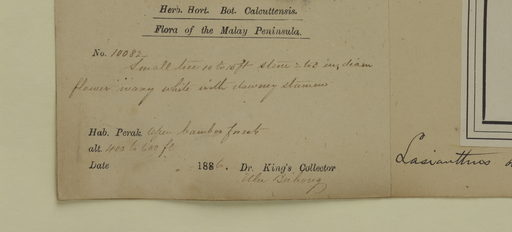 Herb. Hort. Bot. Calcuttensis.
Flora of the Malay Peninsula.
No. 10082
Small tree 10 to 15 ft stem 2 to 3 in, diam
flower waxy white with downy stamens
Hab. Perak, open bamboo forest
alt. 400 to 600 ft
Date 1886. Dr. King's Collector
Ulu Bubong
Lasianthus